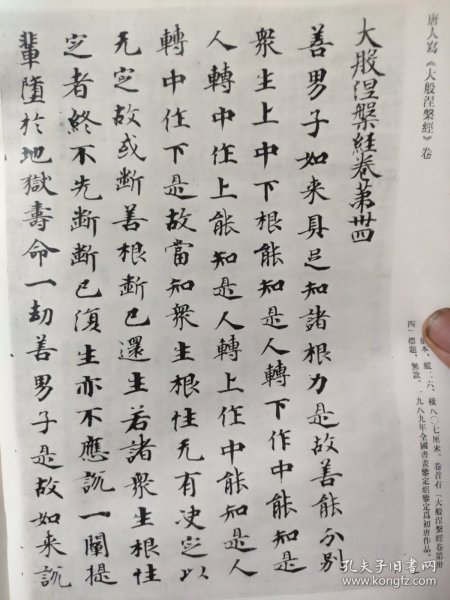 唐人寫《大般涅槃經》卷
紙本，縱二六、橫八〇七厘米。卷首有「大般涅槃經卷第卅
四」標題，無款。一九八九年全國書畫鑒定組鑒定爲初唐作品。
大般涅槃経卷第卅四
善男子如来具足知諸根力是故善能分別
衆生上中下根能知是人轉下作中能知是
人轉中作上能知是人轉上作中能知是人
轉中作下是故當知衆生根性无有决定以
无定故或断善根断已還生若諸衆生根性
定者終不先断断已復生亦不應說一闡提
輩墮於地獄壽命一劫善男子是故如来說
孔夫子旧书网
book.kongfz.com